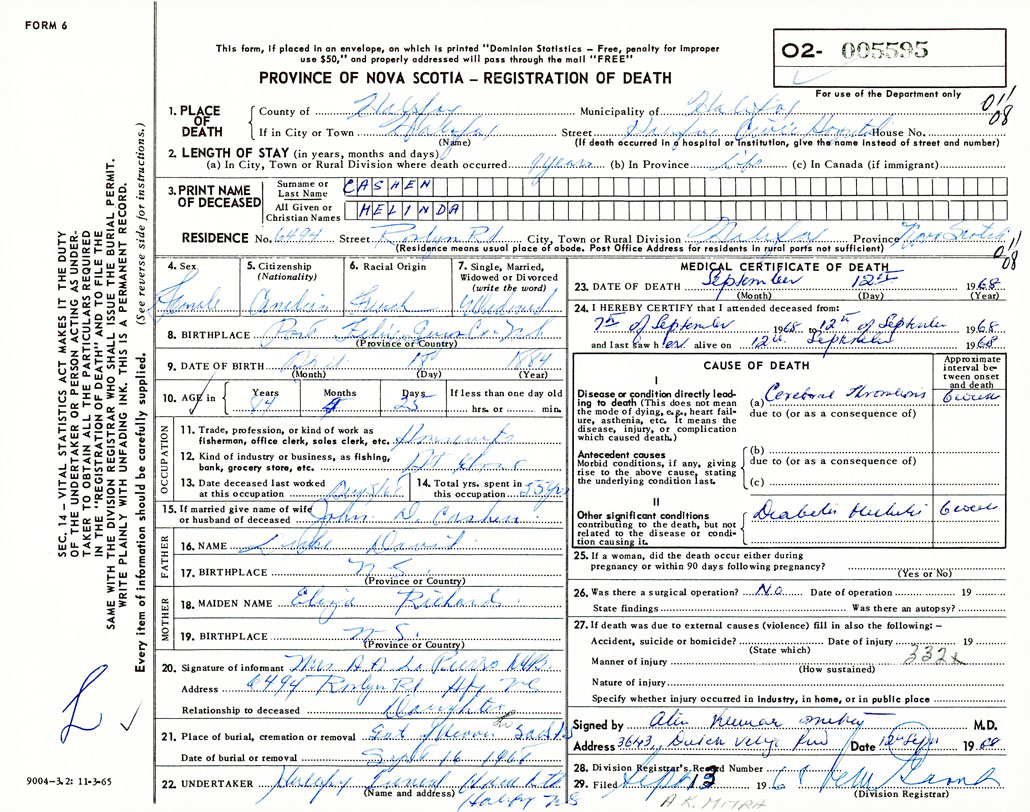 FORM 6
This form, if placed in an envelope, on which is printed "Dominion Statistics – Free, penalty for improper
use $50," and properly addressed will pass through the mail "FREE"
PROVINCE OF NOVA SCOTIA – REGISTRATION OF DEATH
O2- 005595
For use of the Department only
011
08
1. PLACE OF DEATH
County of Halifax Municipality of Halifax
If in City or Town Halifax Street Halifax Civic Hospital House No.
(Name) (If death occurred in a hospital or institution, give the name instead of street and number)
2. LENGTH OF STAY (in years, months and days)
(a) In City, Town or Rural Division where death occurred 9 years (b) In Province Life (c) In Canada (if immigrant)
3. PRINT NAME OF DECEASED
Surname or Last Name CASHEN
All Given or Christian Names HELINDA
RESIDENCE No. 6494 Street Roslyn Rd City, Town or Rural Division Halifax Province Nova Scotia
(Residence means usual place of abode. Post Office Address for residents in rural parts not sufficient)
011
08
4. Sex Female
5. Citizenship (Nationality) Canadian
6. Racial Origin French
7. Single, Married, Widowed or Divorced (write the word) Widowed
8. BIRTHPLACE Port Felix Guys Co N.S.
(Province or Country)
9. DATE OF BIRTH 18 1884
(Month) (Day) (Year)
10. AGE in Years 84 Months 4 Days 25 If less than one day old
hrs. or min.
OCCUPATION
11. Trade, profession, or kind of work as
fisherman, office clerk, sales clerk, etc. Housewife
12. Kind of industry or business, as fishing,
bank, grocery store, etc. At Home
13. Date deceased last worked
at this occupation
14. Total yrs. spent in
this occupation 55 yrs
15. If married give name of wife
or husband of deceased John D. Cashen
FATHER
16. NAME David
17. BIRTHPLACE N.S.
(Province or Country)
MOTHER
18. MAIDEN NAME Eliza Richard
19. BIRTHPLACE N.S.
(Province or Country)
20. Signature of informant Mrs
Address 6494 Roslyn Rd Hfx NS
Relationship to deceased Daughter
21. Place of burial, cremation or removal Gate of Heaven
Date of burial or removal Sept 16 1968
22. UNDERTAKER Halifax Funeral Home Ltd
(Name and address) Halifax N.S
MEDICAL CERTIFICATE OF DEATH
23. DATE OF DEATH September 12th 1968
(Month) (Day) (Year)
24. I HEREBY CERTIFY that I attended deceased from:
7th of September 1968 to 12th of September 1968
and last saw her alive on 12th September 1968
CAUSE OF DEATH
Approximate interval between onset and death
I
Disease or condition directly lead-
ing to death (This does not mean
the mode of dying, e.g., heart fail-
ure, asthenia, etc. It means the
disease, injury, or complication
which caused death.)
(a) Cerebral Thrombosis 6 weeks
due to (or as a consequence of)
Antecedent causes
Morbid conditions, if any, giving
rise to the above cause, stating
the underlying condition last.
(b)
due to (or as a consequence of)
(c)
II
Other significant conditions
contributing to the death, but not
related to the disease or condi-
tion causing it.
Diabetes Mellitus 6 weeks
25. If a woman, did the death occur either during
pregnancy or within 90 days following pregnancy?
(Yes or No)
26. Was there a surgical operation? No. Date of operation 19
State findings Was there an autopsy?
27. If death was due to external causes (violence) fill in also the following: –
Accident, suicide or homicide? Date of injury 19
(State which)
Manner of injury 332x
(How sustained)
Nature of injury
Specify whether injury occurred in industry, in home, or in public place
Signed by Kumar M.D.
Address 3643, Dutch Date 12th Sept 1968
28. Division Registrar's Record Number
29. Filed Sept 13 1968
(Division Registrar)
A.K. MITRA
SEC. 14 – VITAL STATISTICS ACT MAKES IT THE DUTY
OF THE UNDERTAKER OR PERSON ACTING AS UNDER-
TAKER TO OBTAIN ALL THE PARTICULARS REQUIRED
IN THE "REGISTRATION OF DEATH" AND TO FILE THE
SAME WITH THE DIVISION REGISTRAR WHO SHALL ISSUE THE BURIAL PERMIT.
WRITE PLAINLY WITH UNFADING INK. THIS IS A PERMANENT RECORD.
Every item of information should be carefully supplied. (See reverse side for instructions.)
9004–3.2: 11-3-65